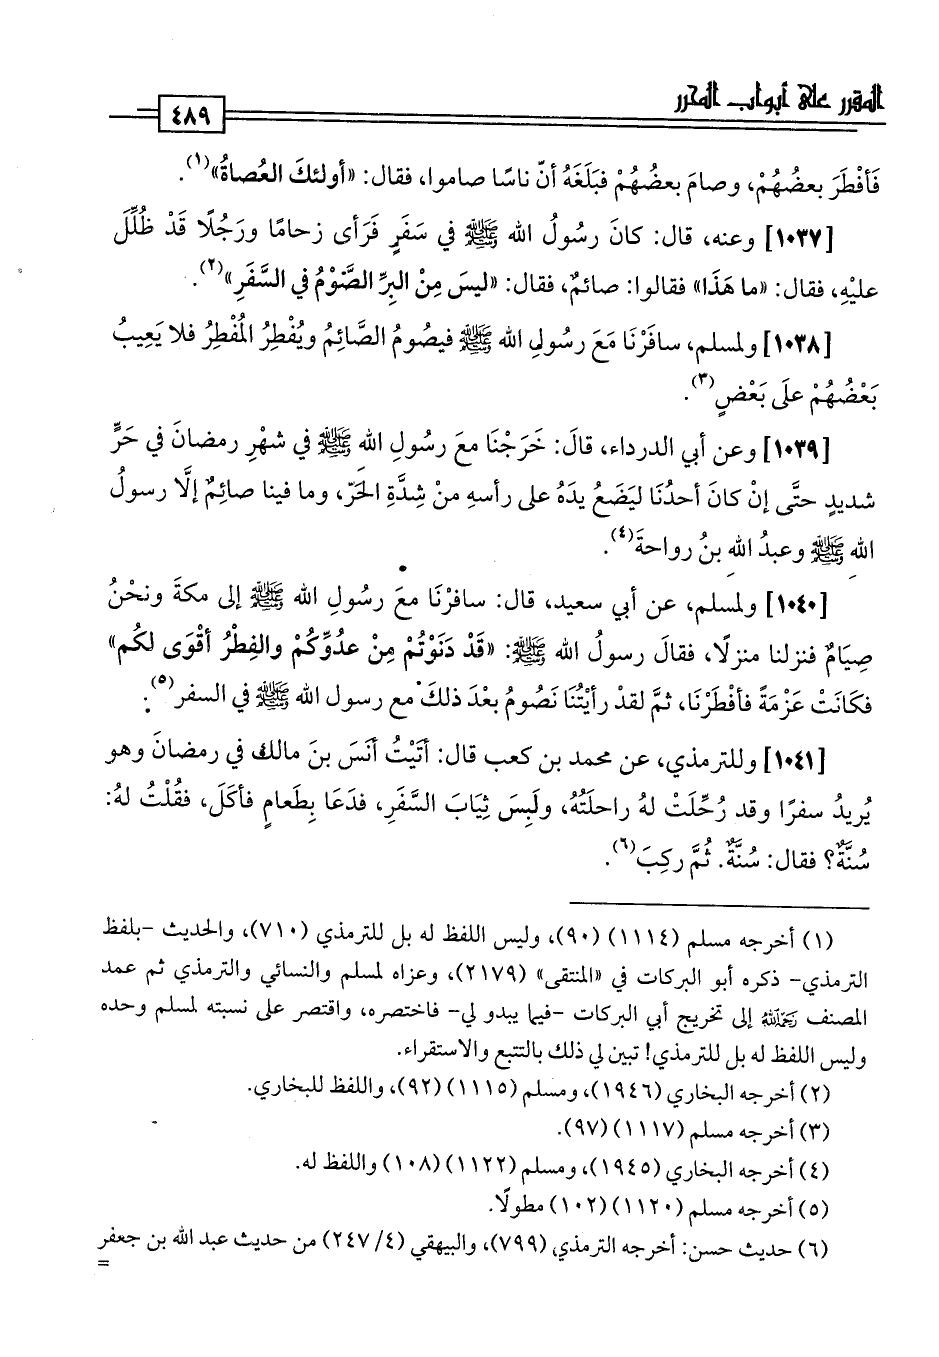 المقرر على أبواب المحرر
٤٨٩
فَأفْطَرَ بعضُهُمْ، وصامَ بعضُهُمْ فبَلَغَهُ أنّ ناسًا صاموا، فقال: «أولئكَ العُصاةُ»(١).
[١٠٣٧] وعنه، قال: كانَ رسُولُ الله ﷺ في سَفَرٍ فَرَأى زحامًا ورَجُلًا قَدْ ظُلِّلَ
عليْهِ، فقال: «ما هَذَا» فقالوا: صائمٌ، فقال: «ليسَ مِنْ البِرِّ الصَّوْمُ في السَّفَرِ»(٢).
[١٠٣٨] ولمسلم، سافَرْنَا مَعَ رسُولِ الله ﷺ فيصُومُ الصَّائِمُ ويُفْطِرُ المُفْطِرُ فلا يَعِيبُ
بَعْضُهُمْ علَى بَعْضٍ(٣).
[١٠٣٩] وعن أبي الدرداء، قالَ: خَرَجْنَا معَ رسُولِ الله ﷺ في شهْرِ رمضانَ في حَرٍّ
شديدٍ حتَّى إنْ كانَ أحدُنَا ليَضَعُ يدَهُ على رأسِهِ منْ شِدَّةِ الحَرّ، وما فينا صائِمٌ إلَّا رسولُ
الله ﷺ وعبدُ الله بنُ رواحةَ(٤).
[١٠٤٠] ولمسلم، عن أبي سعيد، قال: سافرْنَا معَ رسُولِ الله ﷺ إلى مكةَ ونحْنُ
صِيَامٌ فنزلنا منزلًا، فقالَ رسولُ الله ﷺ: «قَدْ دَنَوْتُم مِنْ عدُوِّكُمْ والفِطْرُ أقْوَى لكُم»
فكَانَتْ عَزْمَةً فأفْطَرْنَا، ثمَّ لقدْ رأيْتُنَا نَصُومُ بعْدَ ذلكَ مع رسول الله ﷺ في السفر(٥).
[١٠٤١] وللترمذي، عن محمد بن كعب قال: أتَيْتُ أنَسَ بنَ مالك في رمضانَ وهو
يُريدُ سفرًا وقد رُحِّلَتْ لهُ راحلَتُهُ، ولَبِسَ ثِيَابَ السَّفَرِ، فدَعَا بِطَعامٍ فأكَلَ، فقُلْتُ لهُ:
سُنَّةٌ؟ فقال: سُنَّةٌ. ثُمَّ ركِبَ(٦).
(١) أخرجه مسلم (١١١٤) (٩٠)، وليس اللفظ له بل للترمذي (٧١٠)، والحديث -بلفظ
الترمذي- ذكره أبو البركات في «المنتقى» (٢١٧٩)، وعزاه لمسلم والنسائي والترمذي ثم عمد
المصنف رَحِمَهُ اللهُ إلى تخريج أبي البركات -فيما يبدو لي- فاختصره، واقتصر على نسبته لمسلم وحده
وليس اللفظ له بل للترمذي! تبين لي ذلك بالتتبع والاستقراء.
(٢) أخرجه البخاري (١٩٤٦)، ومسلم (١١١٥) (٩٢)، واللفظ للبخاري.
(٣) أخرجه مسلم (١١١٧) (٩٧).
(٤) أخرجه البخاري (١٩٤٥)، ومسلم (١١٢٢) (١٠٨) واللفظ له.
(٥) أخرجه مسلم (١١٢٠) (١٠٢) مطولًا.
(٦) حديث حسن: أخرجه الترمذي (٧٩٩)، والبيهقي (٤/ ٢٤٧) من حديث عبد الله بن جعفر
=